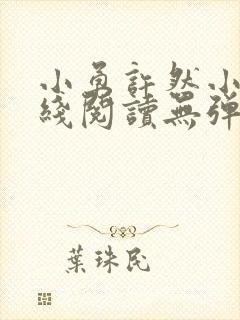 小勇許然小
綫閱讀無彈
葉珠民